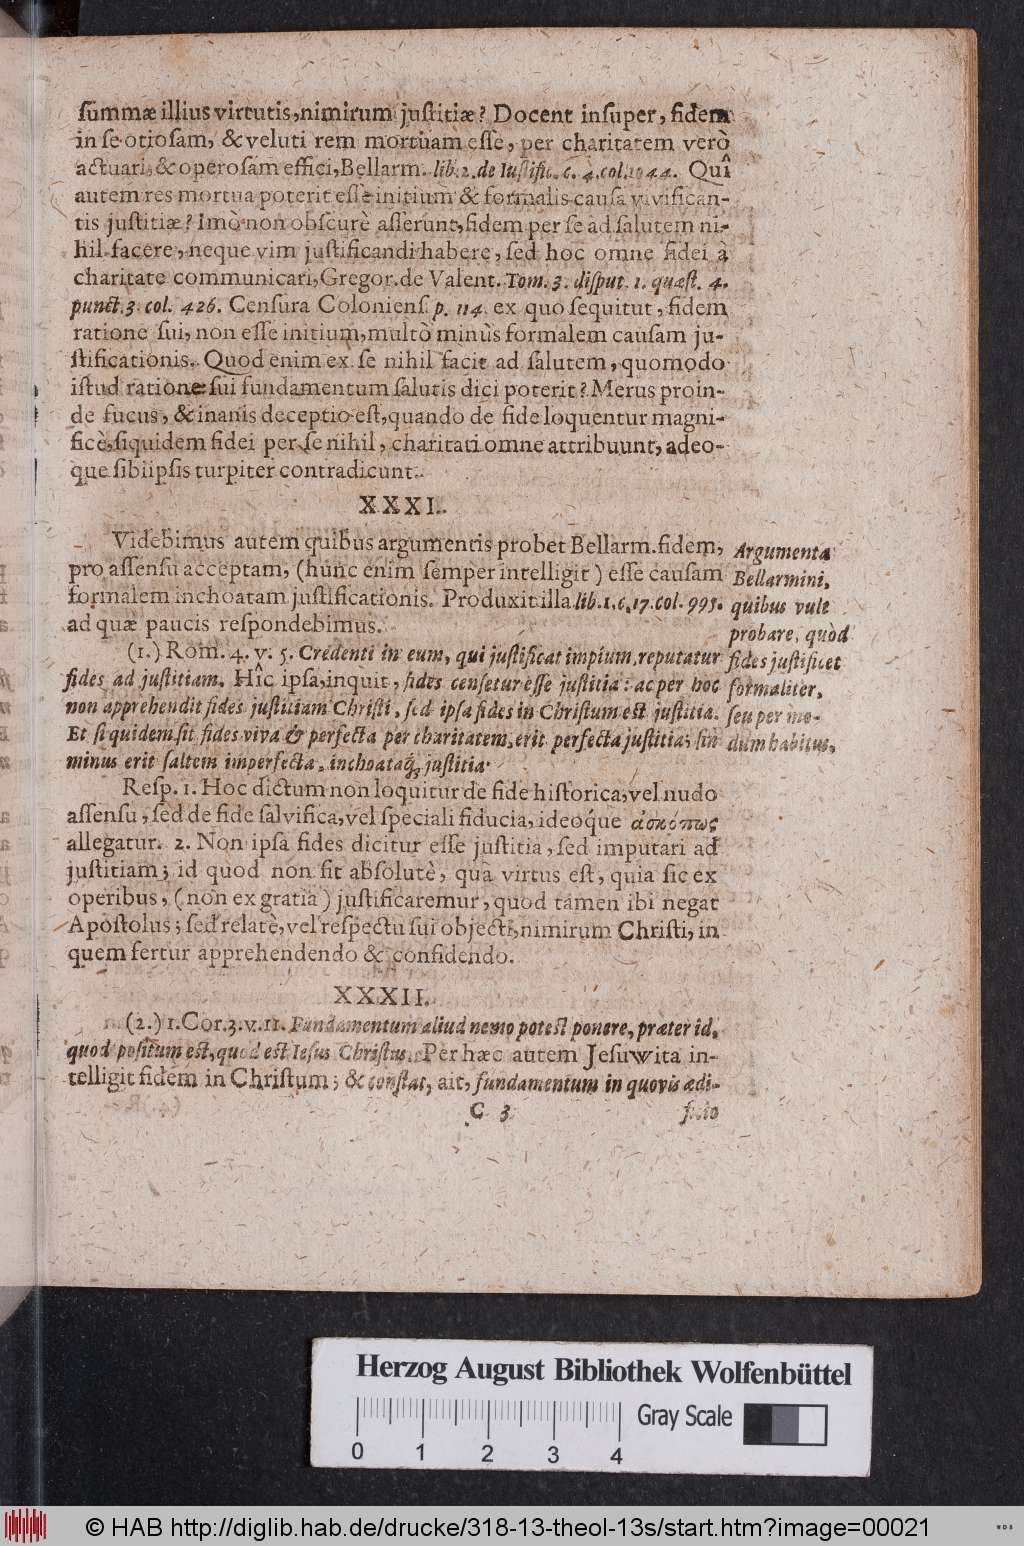 ſummæ illius virtutis, nimirum juſtitiæ? Docent inſuper, fidem
in ſe otioſam, & veluti rem mortuam eſſe, per charitatem verò
actuari, & operoſam effici, Bellarm. lib. 2. de Iuſtific. c. 4. col. 1044. Quî
autem res mortua poterit eſſe initium & formalis cauſa vivifican-
tis juſtitiæ? Imò non obſcurè aſſerunt, fidem per ſe ad ſalutem ni-
hil facere, neque vim juſtificandi habere, ſed hoc omne fidei à
charitate communicari, Gregor. de Valent. Tom. 3. diſput. 1. quæſt. 4.
punct. 3. col. 426. Cenſura Colonienſ. p. 114. ex quo ſequitut, fidem
ratione ſui, non eſſe initium, multò minùs formalem cauſam ju-
ſtificationis. Quod enim ex ſe nihil facit ad ſalutem, quomodo
iſtud ratione ſui fundamentum ſalutis dici poterit? Merus proin-
de fucus, & inanis deceptio eſt, quando de fide loquentur magni-
ficè, ſiquidem fidei per ſe nihil, charitati omne attribuunt, adeo-
que ſibiipſis turpiter contradicunt.
XXXI.
Videbimus autem quibus argumentis probet Bellarm. fidem,
pro aſſenſu acceptam, (hunc enim ſemper intelligit) eſſe cauſam
formalem inchoatam juſtificationis. Produxit illa lib. 1. c. 17. col. 995.
ad quæ paucis reſpondebimus.
Argumenta
Bellarmini,
quibus vult
probare, quòd
fides juſtificet
formaliter,
ſeu per mo-
dum habitus,
(1.) Rom. 4. v. 5. Credenti in eum, qui juſtificat impium, reputatur
fides ad juſtitiam. Hîc ipſa, inquit, fides cenſetur eſſe juſtitia: ac per hoc
non apprehendit fides juſtitiam Chriſti, ſed ipſa fides in Chriſtum eſt juſtitia.
Et ſiquidem ſit fides viva & perfecta per charitatem, erit perfecta juſtitia; ſin
minus erit ſaltem imperfecta, inchoataq; juſtitia.
Reſp. 1. Hoc dictum non loquitur de fide hiſtorica, vel nudo
aſſenſu, ſed de fide ſalvifica, vel ſpeciali fiducia, ideoque ἀσκόπως
allegatur. 2. Non ipſa fides dicitur eſſe juſtitia, ſed imputari ad
juſtitiam; id quod non fit abſolutè, quà virtus eſt, quia ſic ex
operibus, (non ex gratia) juſtificaremur, quod tamen ibi negat
Apoſtolus; ſed relatè, vel reſpectu ſui objecti, nimirum Chriſti, in
quem fertur apprehendendo & confidendo.
XXXII.
(2.) 1. Cor. 3. v. 11. Fundamentum aliud nemo poteſt ponere, præter id,
quod poſitum eſt, quod eſt Ieſus Chriſtus. Per hæc autem Jeſuwita in-
telligit fidem in Chriſtum; & conſtat, ait, fundamentum in quovis ædi-
C 3
ficio
Herzog August Bibliothek Wolfenbüttel
Gray Scale
0 1 2 3 4
© HAB http://diglib.hab.de/drucke/318-13-theol-13s/start.htm?image=00021